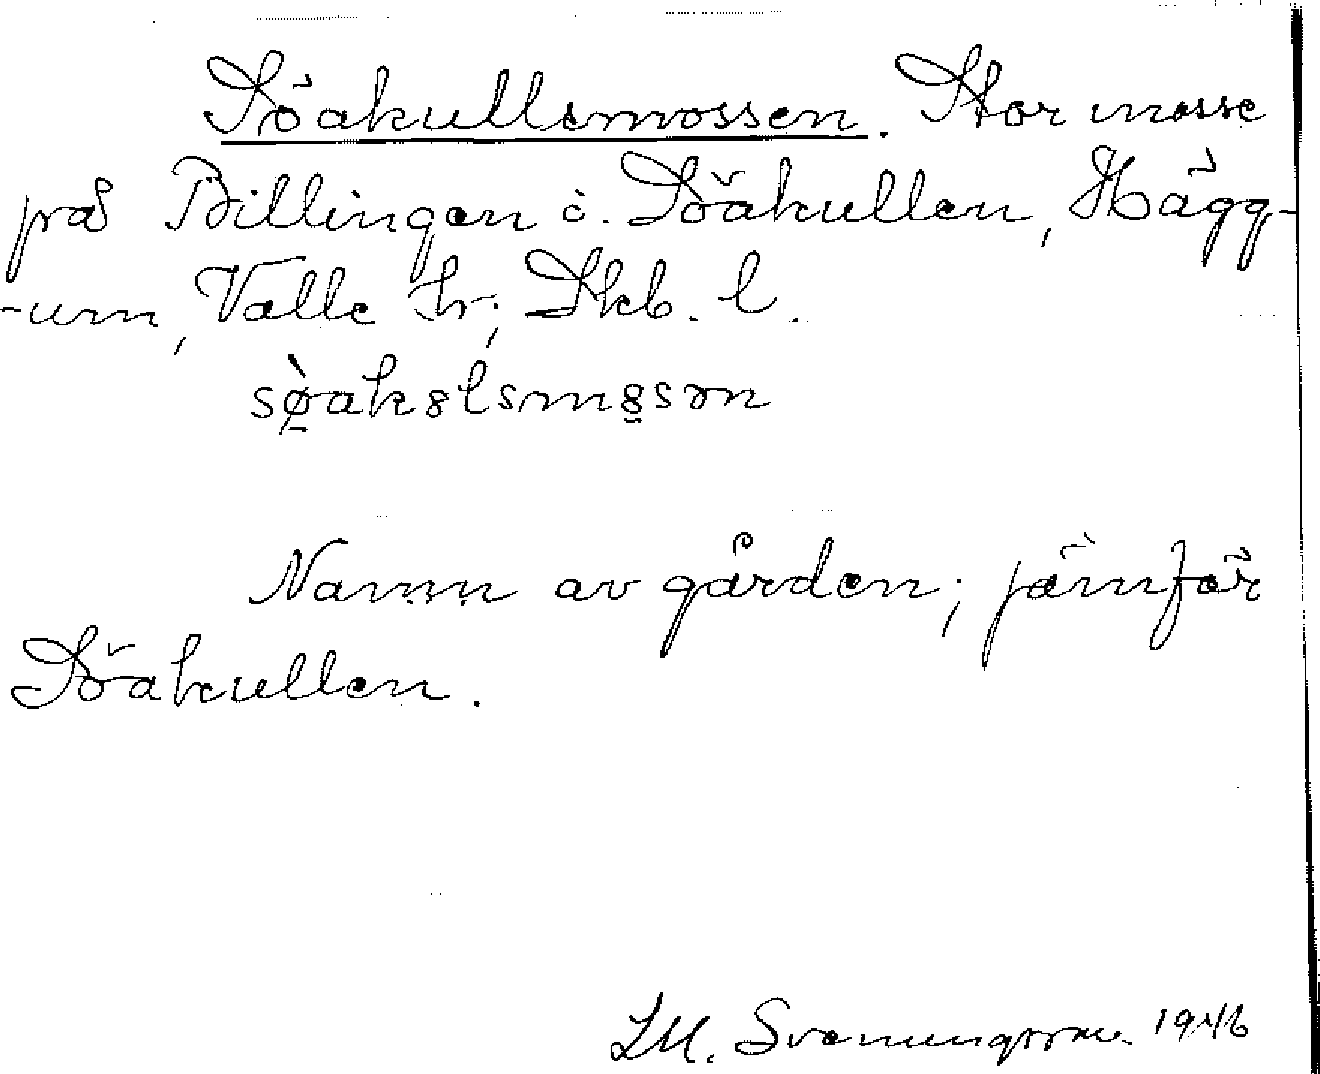 Söakullsmossen. Stor mosse
på Billingen i. Söakullen, Hägg-
-um, Valle hr; Skb. l.
sø̀akȣlsmȣ̱sən
Namn av gården; jämför
Söakullen.
LM. Svenungsson 1946